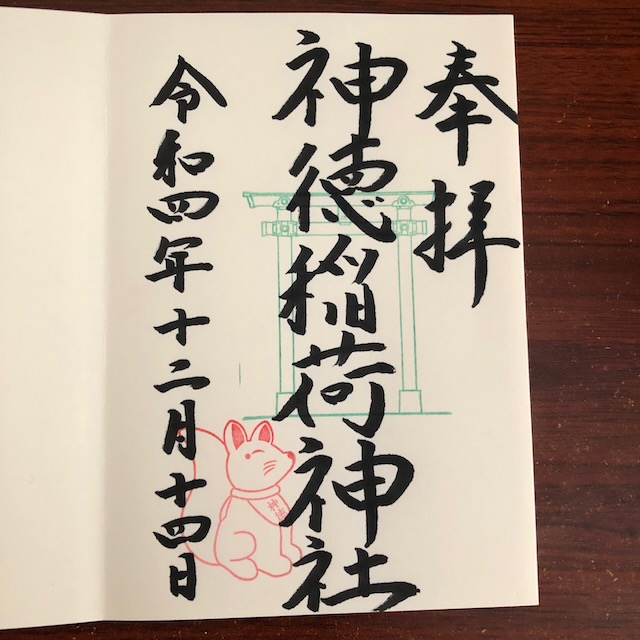 奉拝
神徳稲荷神社
令和四年十二月十四日
神徳